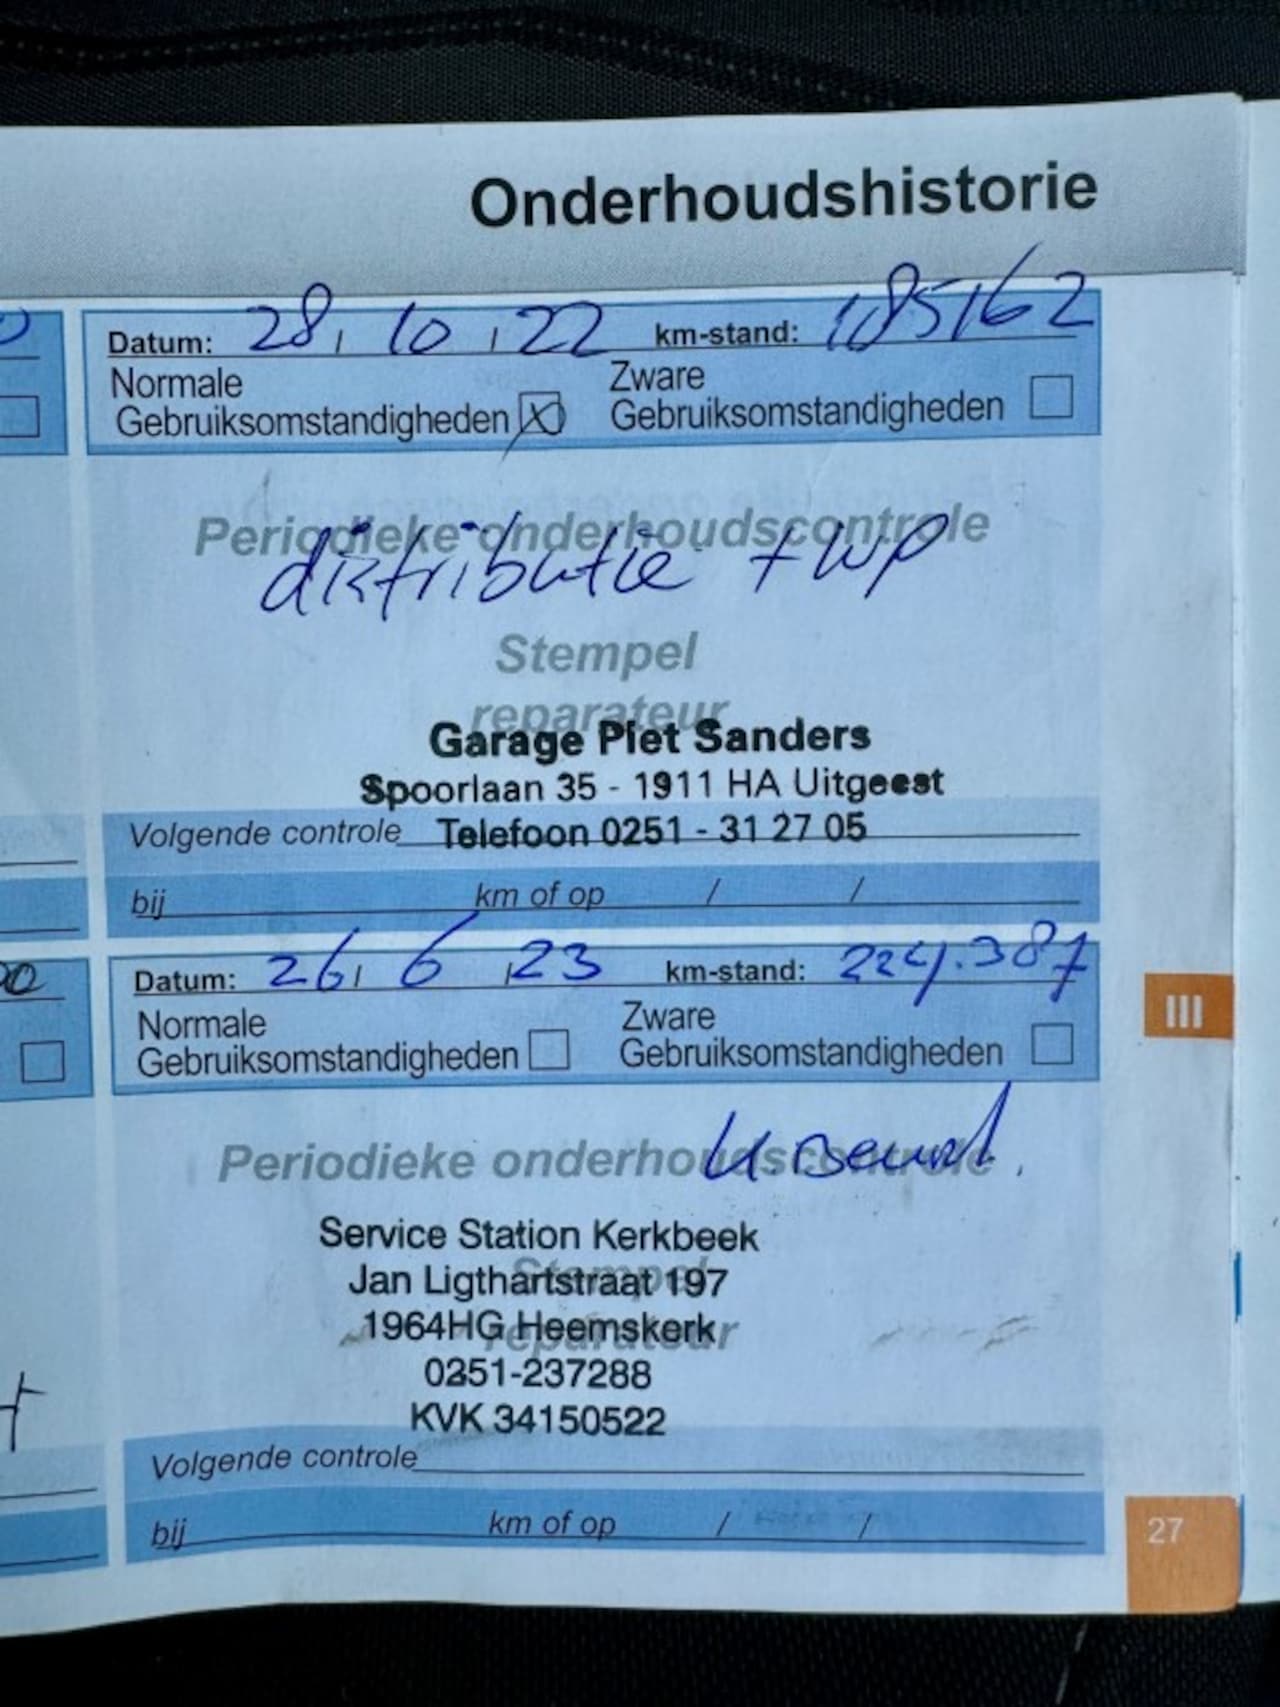 Onderhoudshistorie
Datum: 28 / 10 / 22 km-stand: 185162
Normale Gebruiksomstandigheden X Zware Gebruiksomstandigheden
Periodieke onderhoudscontrole
distributie + WP
Stempel
reparateur
Garage Piet Sanders
Spoorlaan 35 - 1911 HA Uitgeest
Volgende controle Telefoon 0251 - 31 27 05
bij km of op / /
Datum: 26 / 6 / 23 km-stand: 224.387
Normale Gebruiksomstandigheden Zware Gebruiksomstandigheden
III
Periodieke onderhoudscontrole
Service Station Kerkbeek
Stempel
Jan Ligthartstraat 197
1964HG Heemskerk
reparateur
0251-237288
KVK 34150522
Volgende controle
bij km of op / /
27